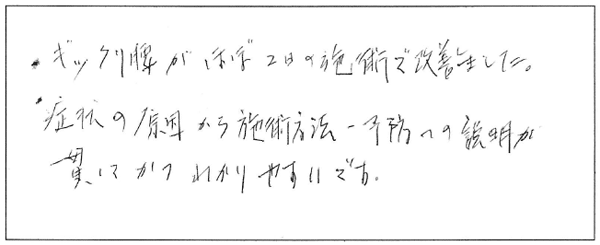 ・ギックリ腰がほぼ2日の施術で改善しました。
・症状の原因から施術方法-予防への説明が
一貫してかつわかりやすいです。